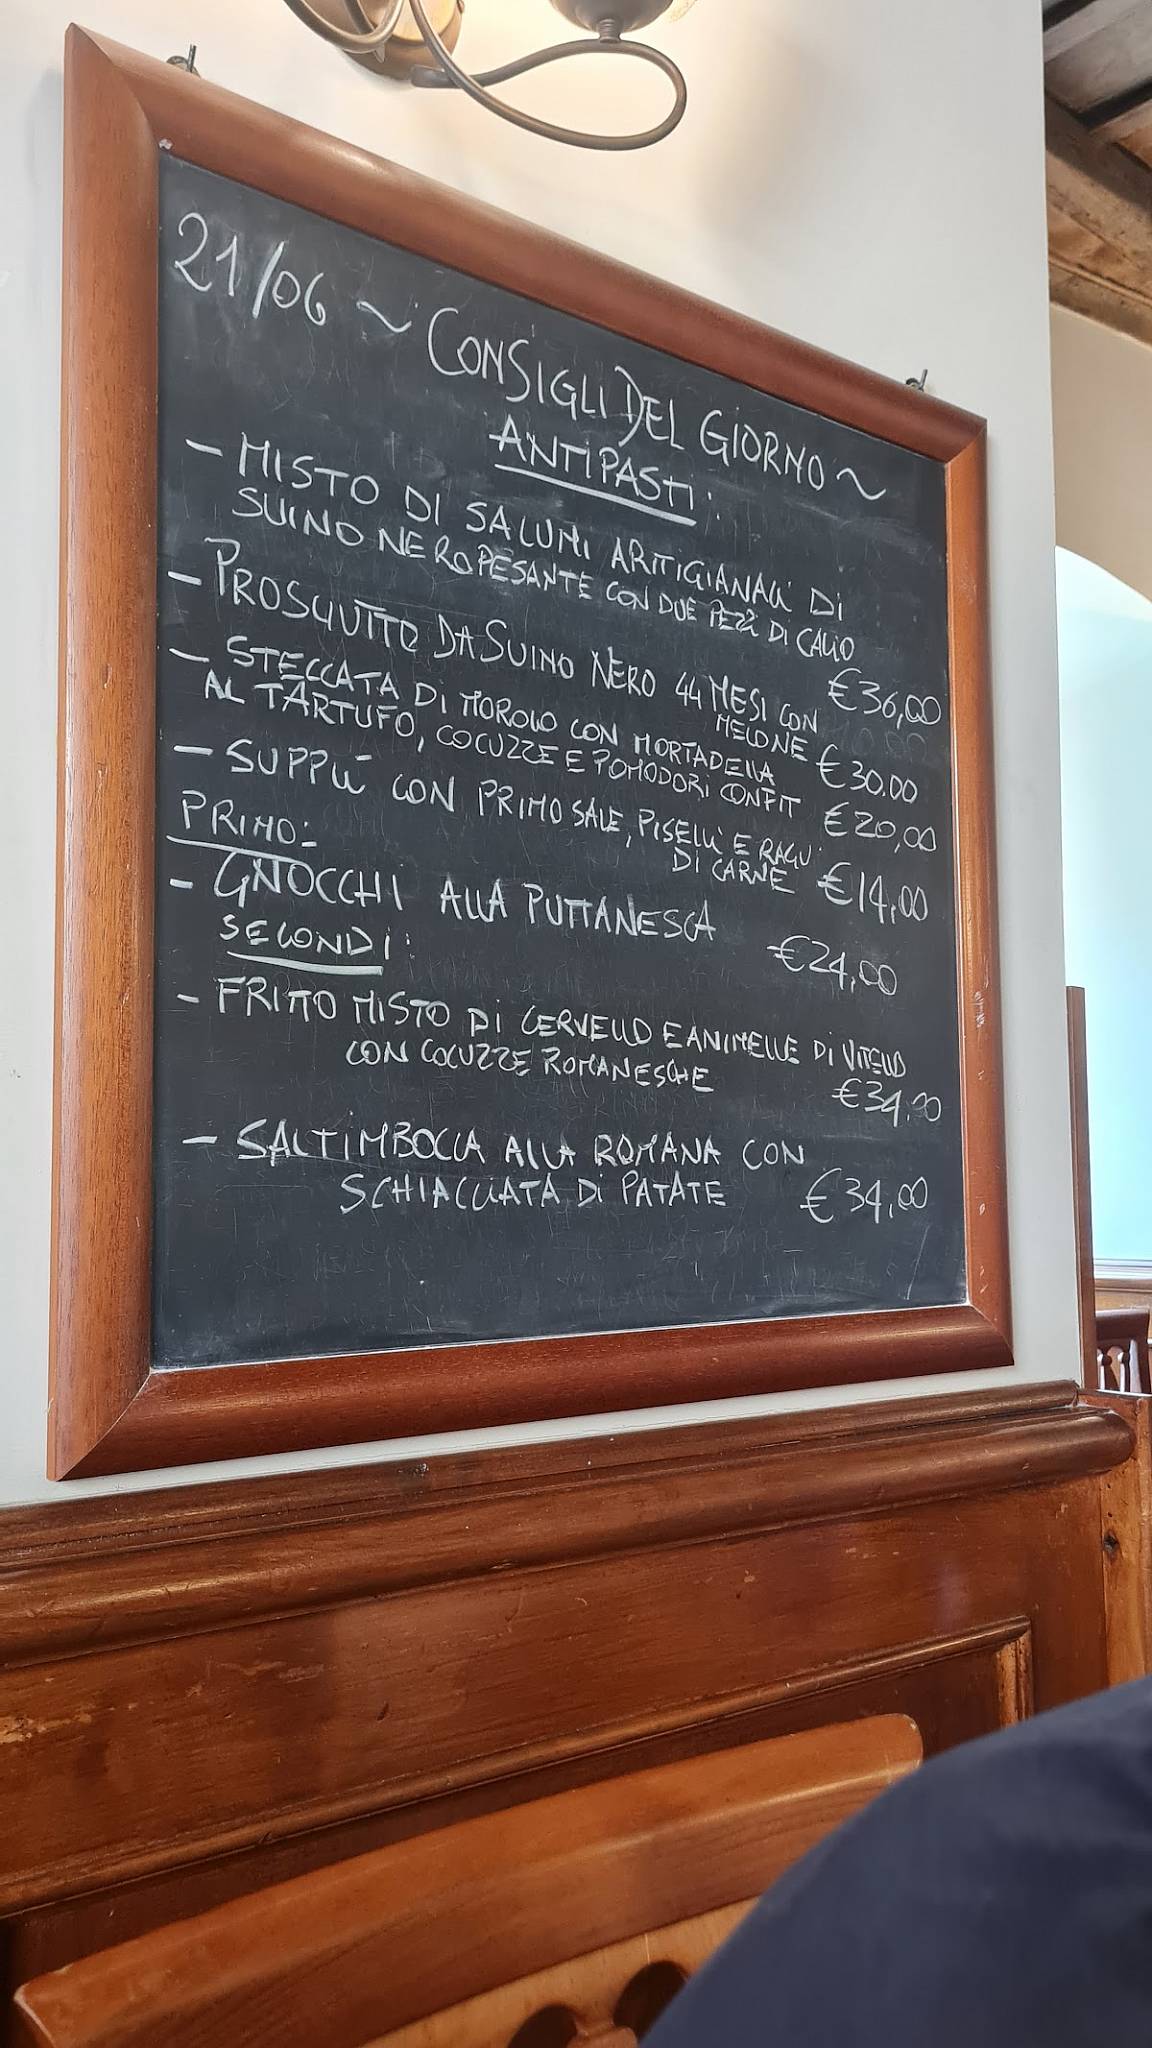 21/06 ~ CONSIGLI DEL GIORNO ~
ANTIPASTI:
- MISTO DI SALUMI ARTIGIANALI DI
SUINO NERO PESANTE CON DUE PEZZI DI CACIO
€36,00
- PROSCIUTTO DA SUINO NERO 44 MESI CON
MELONE €30.00
- STECCATA DI MOROLO CON MORTADELLA
AL TARTUFO, COCUZZE E POMODORI CONFIT €20,00
- SUPPLÌ CON PRIMO SALE, PISELLI E RAGU'
DI CARNE €14,00
PRIMO:
- GNOCCHI ALLA PUTTANESCA €24,00
SECONDI:
- FRITTO MISTO DI CERVELLO E ANIMELLE DI VITELLO
CON COCUZZE ROMANESCHE €34,00
- SALTIMBOCCA ALLA ROMANA CON
SCHIACCIATA DI PATATE €34,00